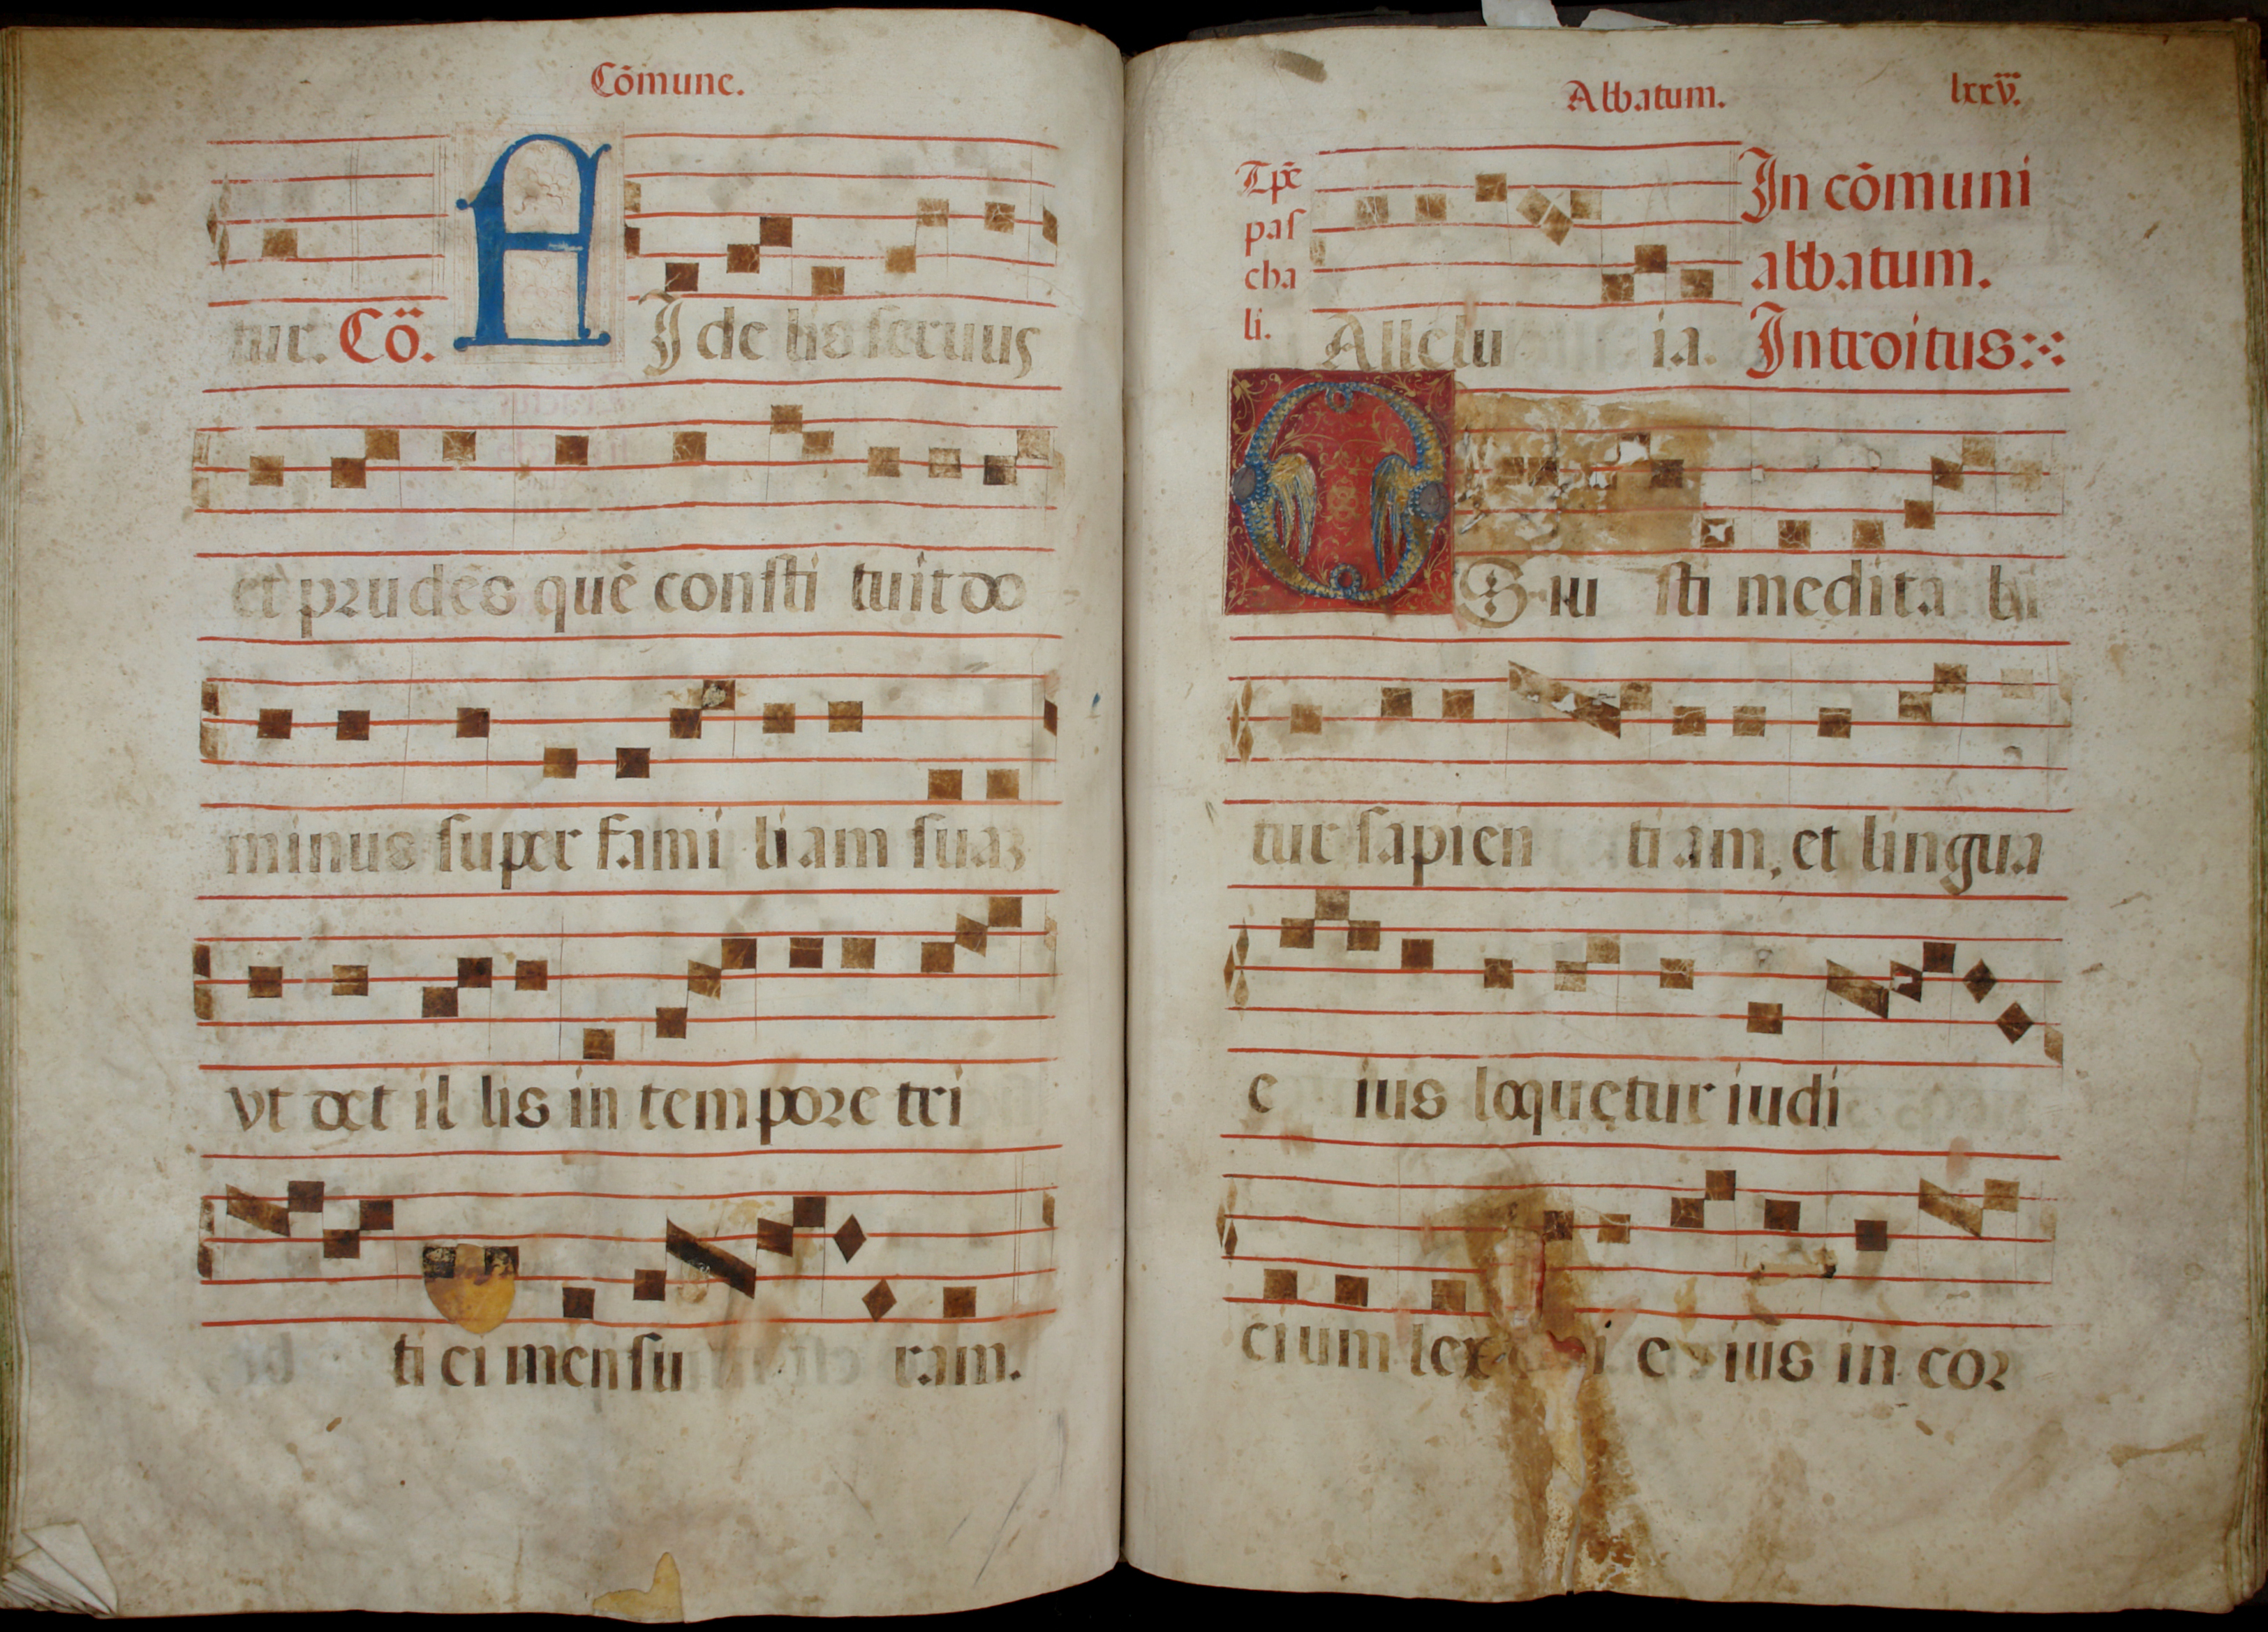 Cõmune.
tur. Cõ. F I de lis seruus
et prudẽs quẽ consti tuit do
minus super fami liam suaʒ
vt det il lis in tempore tri
ti ci mensu ram.
Abbatum. lxxv.
Tp̃e pas cha li. Allelu ia. In cõmuni abbatum. Introitus
O S iu sti medita bi
tur sapien ti am, et lingua
e ius loquetur iudi
cium lex i e ius in cor